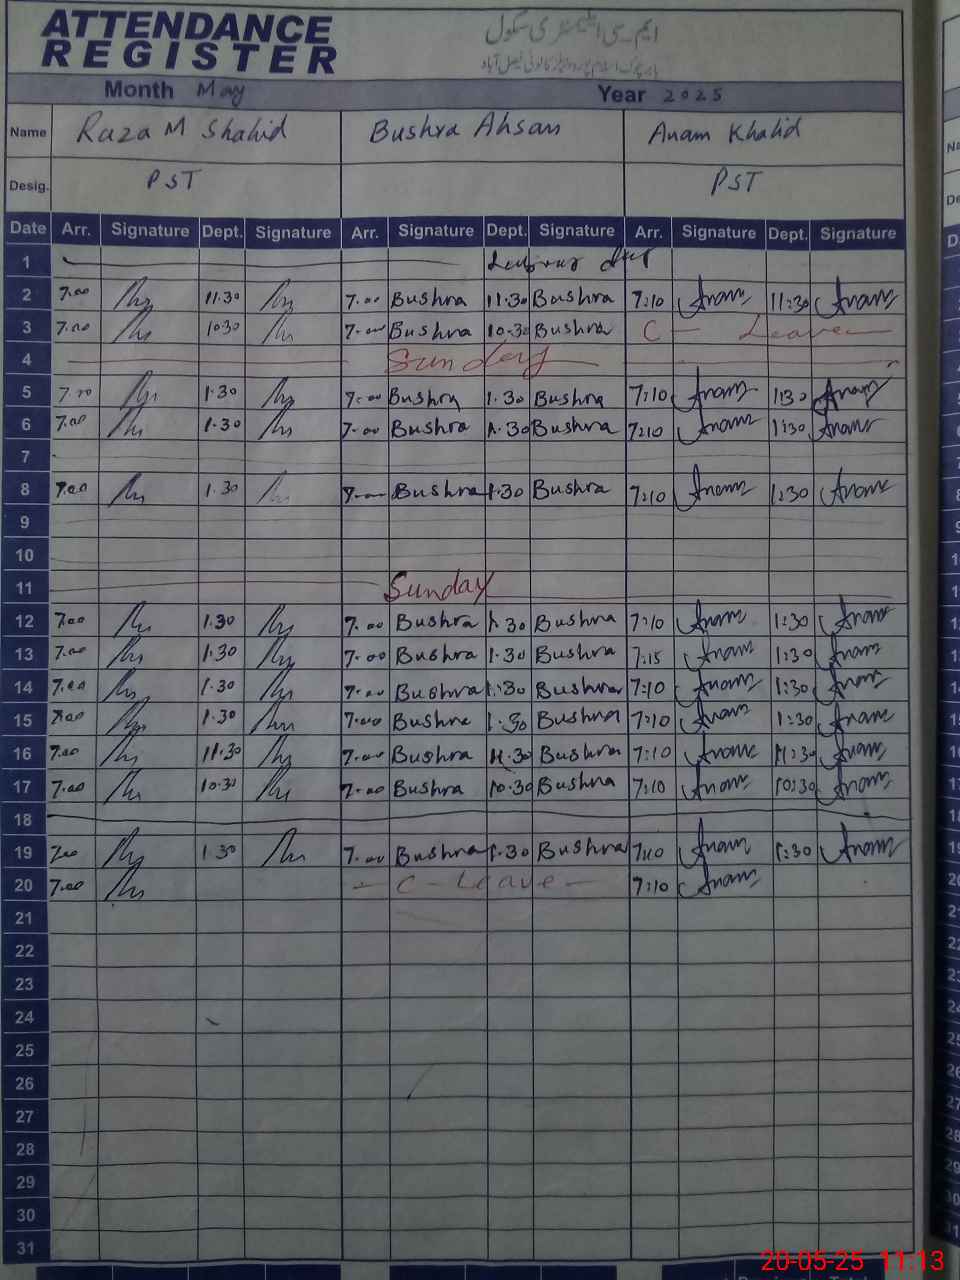 ATTENDANCE
REGISTER
ایم سی ایلیمنٹری سکول
Month May Year 2025
Name Raza M Shahid Bushra Ahsan Anam Khalid
Desig. PST PST
Date Arr. Signature Dept. Signature Arr. Signature Dept. Signature Arr. Signature Dept. Signature
1
2 7.00 11.30 7.00 Bushra 11.30 Bushra 7:10 Anam 11:30 Anam
3 7.00 10.30 7.00 Bushra 10.30 Bushra C - Leave
4 Sunday
5 7.00 1.30 7.00 Bushra 1.30 Bushra 7:10 Anam 1:30 Anam
6 7.00 1.30 7.00 Bushra 1.30 Bushra 7:10 Anam 1:30 Anam
7
8 7.00 1.30 7.00 Bushra 1.30 Bushra 7:10 Anam 1:30 Anam
9
10
11 Sunday
12 7.00 1.30 7.00 Bushra 1.30 Bushra 7:10 Anam 1:30 Anam
13 7.00 1.30 7.00 Bushra 1.30 Bushra 7:15 Anam 1:30 Anam
14 7.00 1.30 7.00 Bushra 1:30 Bushra 7:10 Anam 1:30 Anam
15 7.00 1.30 7.00 Bushra 1.30 Bushra 7:10 Anam 1:30 Anam
16 7.00 11.30 7.00 Bushra 11.30 Bushra 7:10 Anam 11:30 Anam
17 7.00 10.30 7.00 Bushra 10.30 Bushra 7:10 Anam 10:30 Anam
18
19 7.00 1.30 7.00 Bushra 1.30 Bushra 7:10 Anam 1:30 Anam
20 7.00 - C - Leave - 7:10 Anam
21
22
23
24
25
26
27
28
29
30
31
20-05-25 11:13